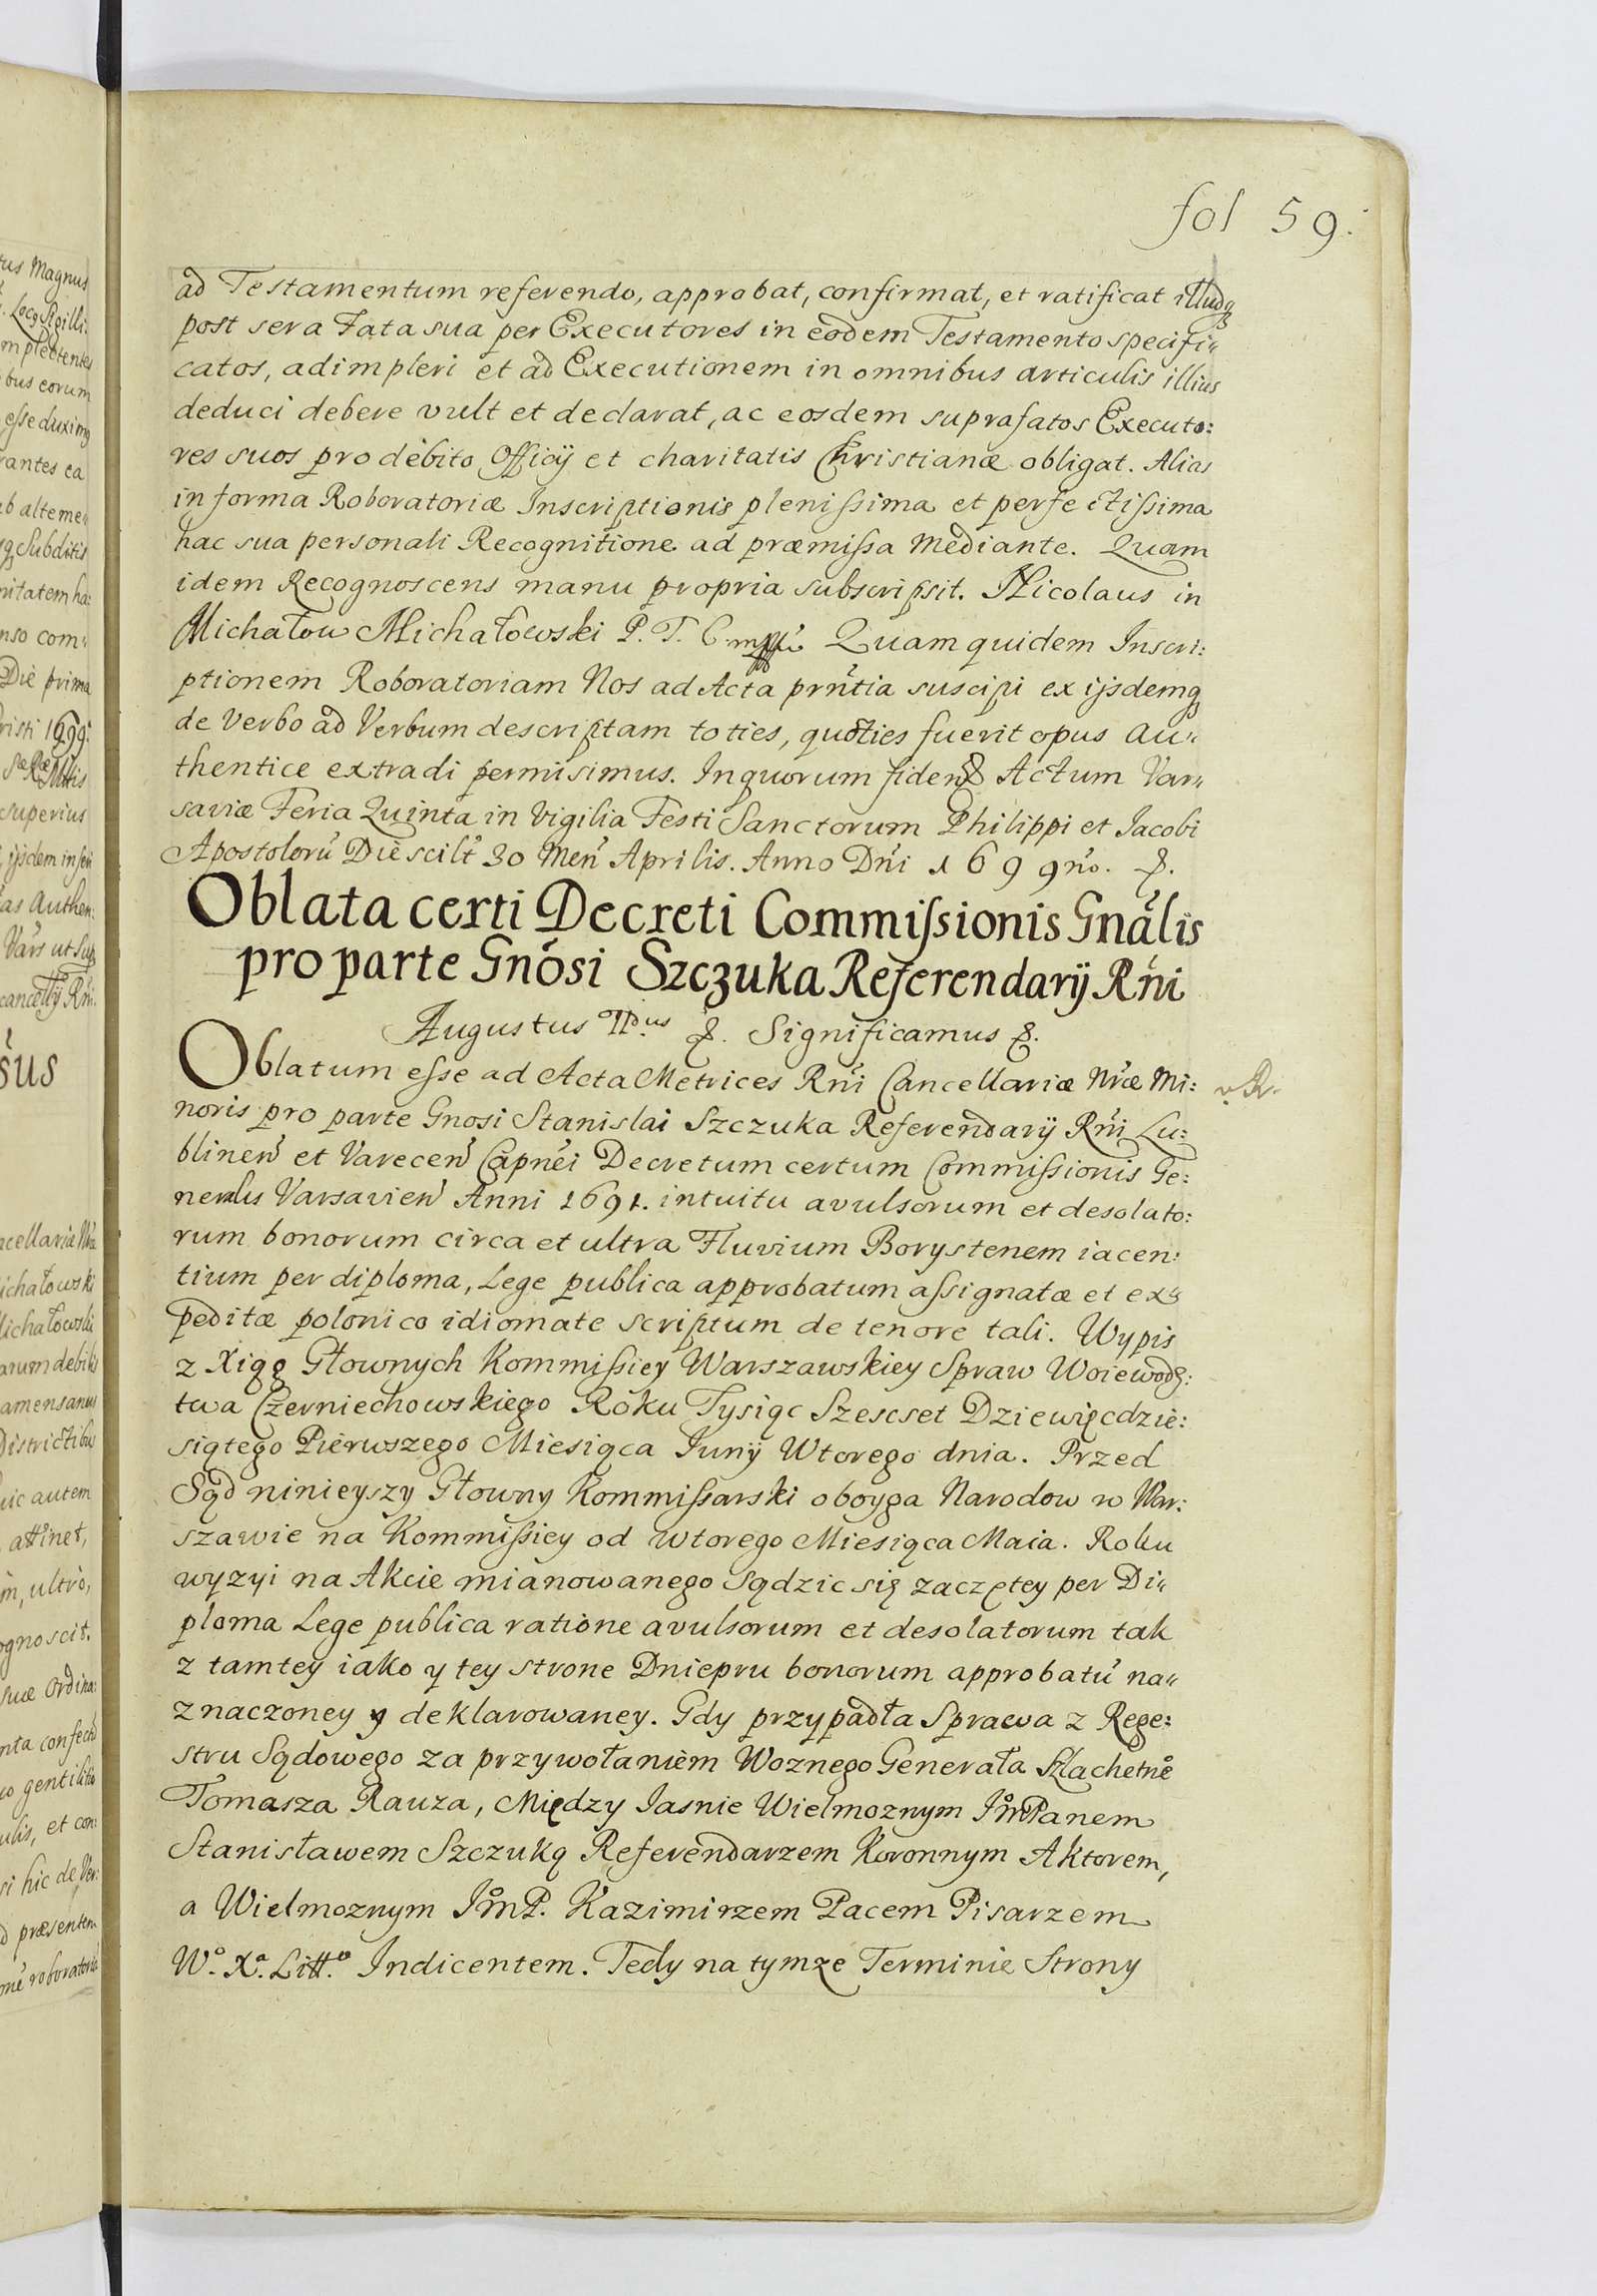 fol 59.
ad Testamentum referendo, approbat, confirmat, et ratificat illudq3
post sera Fata sua per Executores in eodem Testamento specifi„
catos, adimpleri et ad Executionem in omnibus articulis illius
deduci debere vult et declarat, ac eosdem suprafatos Executo:
res suos pro debito Officij et charitatis Christianæ obligat. Alias
in forma Roboratoriæ Inscriptionis plenißima et perfectißima
hac sua personali Recognitione ad præmißa mediante. Quam
idem Recognoscens manu propria subscripsit. Nicolaus in
Michałow Michałowski P. T. Quam quidem Inscri:
ptionem Roboratoriam Nos ad Acta prñtia suscipi ex ijsdemq
de Verbo ad Verbum descriptam toties, quoties fuerit opus Au„
thentice extradi permisimus. In quorum fidem & Actum Var„
saviæ Feria Quinta in Vigilia Festi Sanctorum Philippi et Iacobi
Apostolorũ Die scilt̃ 30 Meñ Aprilis. Anno Dñi 1699nõ. &.
Oblata certi Decreti Commißionis Gnãlis
pro parte Gnõsi Szczuka Referendarij Rñi
Augustus IIdus &. Significamus &.
Oblatum eße ad Acta Metrices Rñi Cancellariæ Nr̃æ Mi:
noris pro parte Gnosi Stanislai Szczuka Referendarij Rñi Lu:
blineñ et Vareceñ Capñei Decretum certum Commißionis Ge:
neralis Varsavieñ Anni 1691. intuitu avulsorum et desolato:
rum bonorum circa et ultra Fluvium Borystenem iacen:
tium per diploma, Lege publica approbatum aßignatæ et ex„
peditæ polonico idiomate scriptum de tenore tali. Wypis
z Xiąg Głownych Kommißiey Warszawskiey Spraw Woiewodz:
twa Czerniechowskiego Roku Tysiąc Szescset Dziewięcdzie:
siątego Pierwszego Miesiąca Iunij Wtorego dnia. Przed
Sąd ninieyszy Głowny Kommißarski oboyga Narodow w War:
szawie na Kommißiey od wtorego Miesiąca Maia. Roku
wyzyi na Akcie mianowanego Sądzic się zaczętey per Di„
ploma Lege publica ratione avulsorum et desolatorum tak
z tamtey iako y tey strone Dniepru bonorum approbatũ na„
znaczoney y deklarowaney. Gdy przypadła Sprawa z Rege:
stru Sądowego za przywołaniem Woznego Generała Szlachetne͠
Tomasza Rauza, Między Iasnie Wielmoznym JmPanem
Stanisławem Szczuką Referendarzem Koronnym Aktorem,
a Wielmoznym JmP. Kazimirzem Pacem Pisarzem
Wº. Xª. Littº. Indicentem. Tedy na tymze Terminie Strony